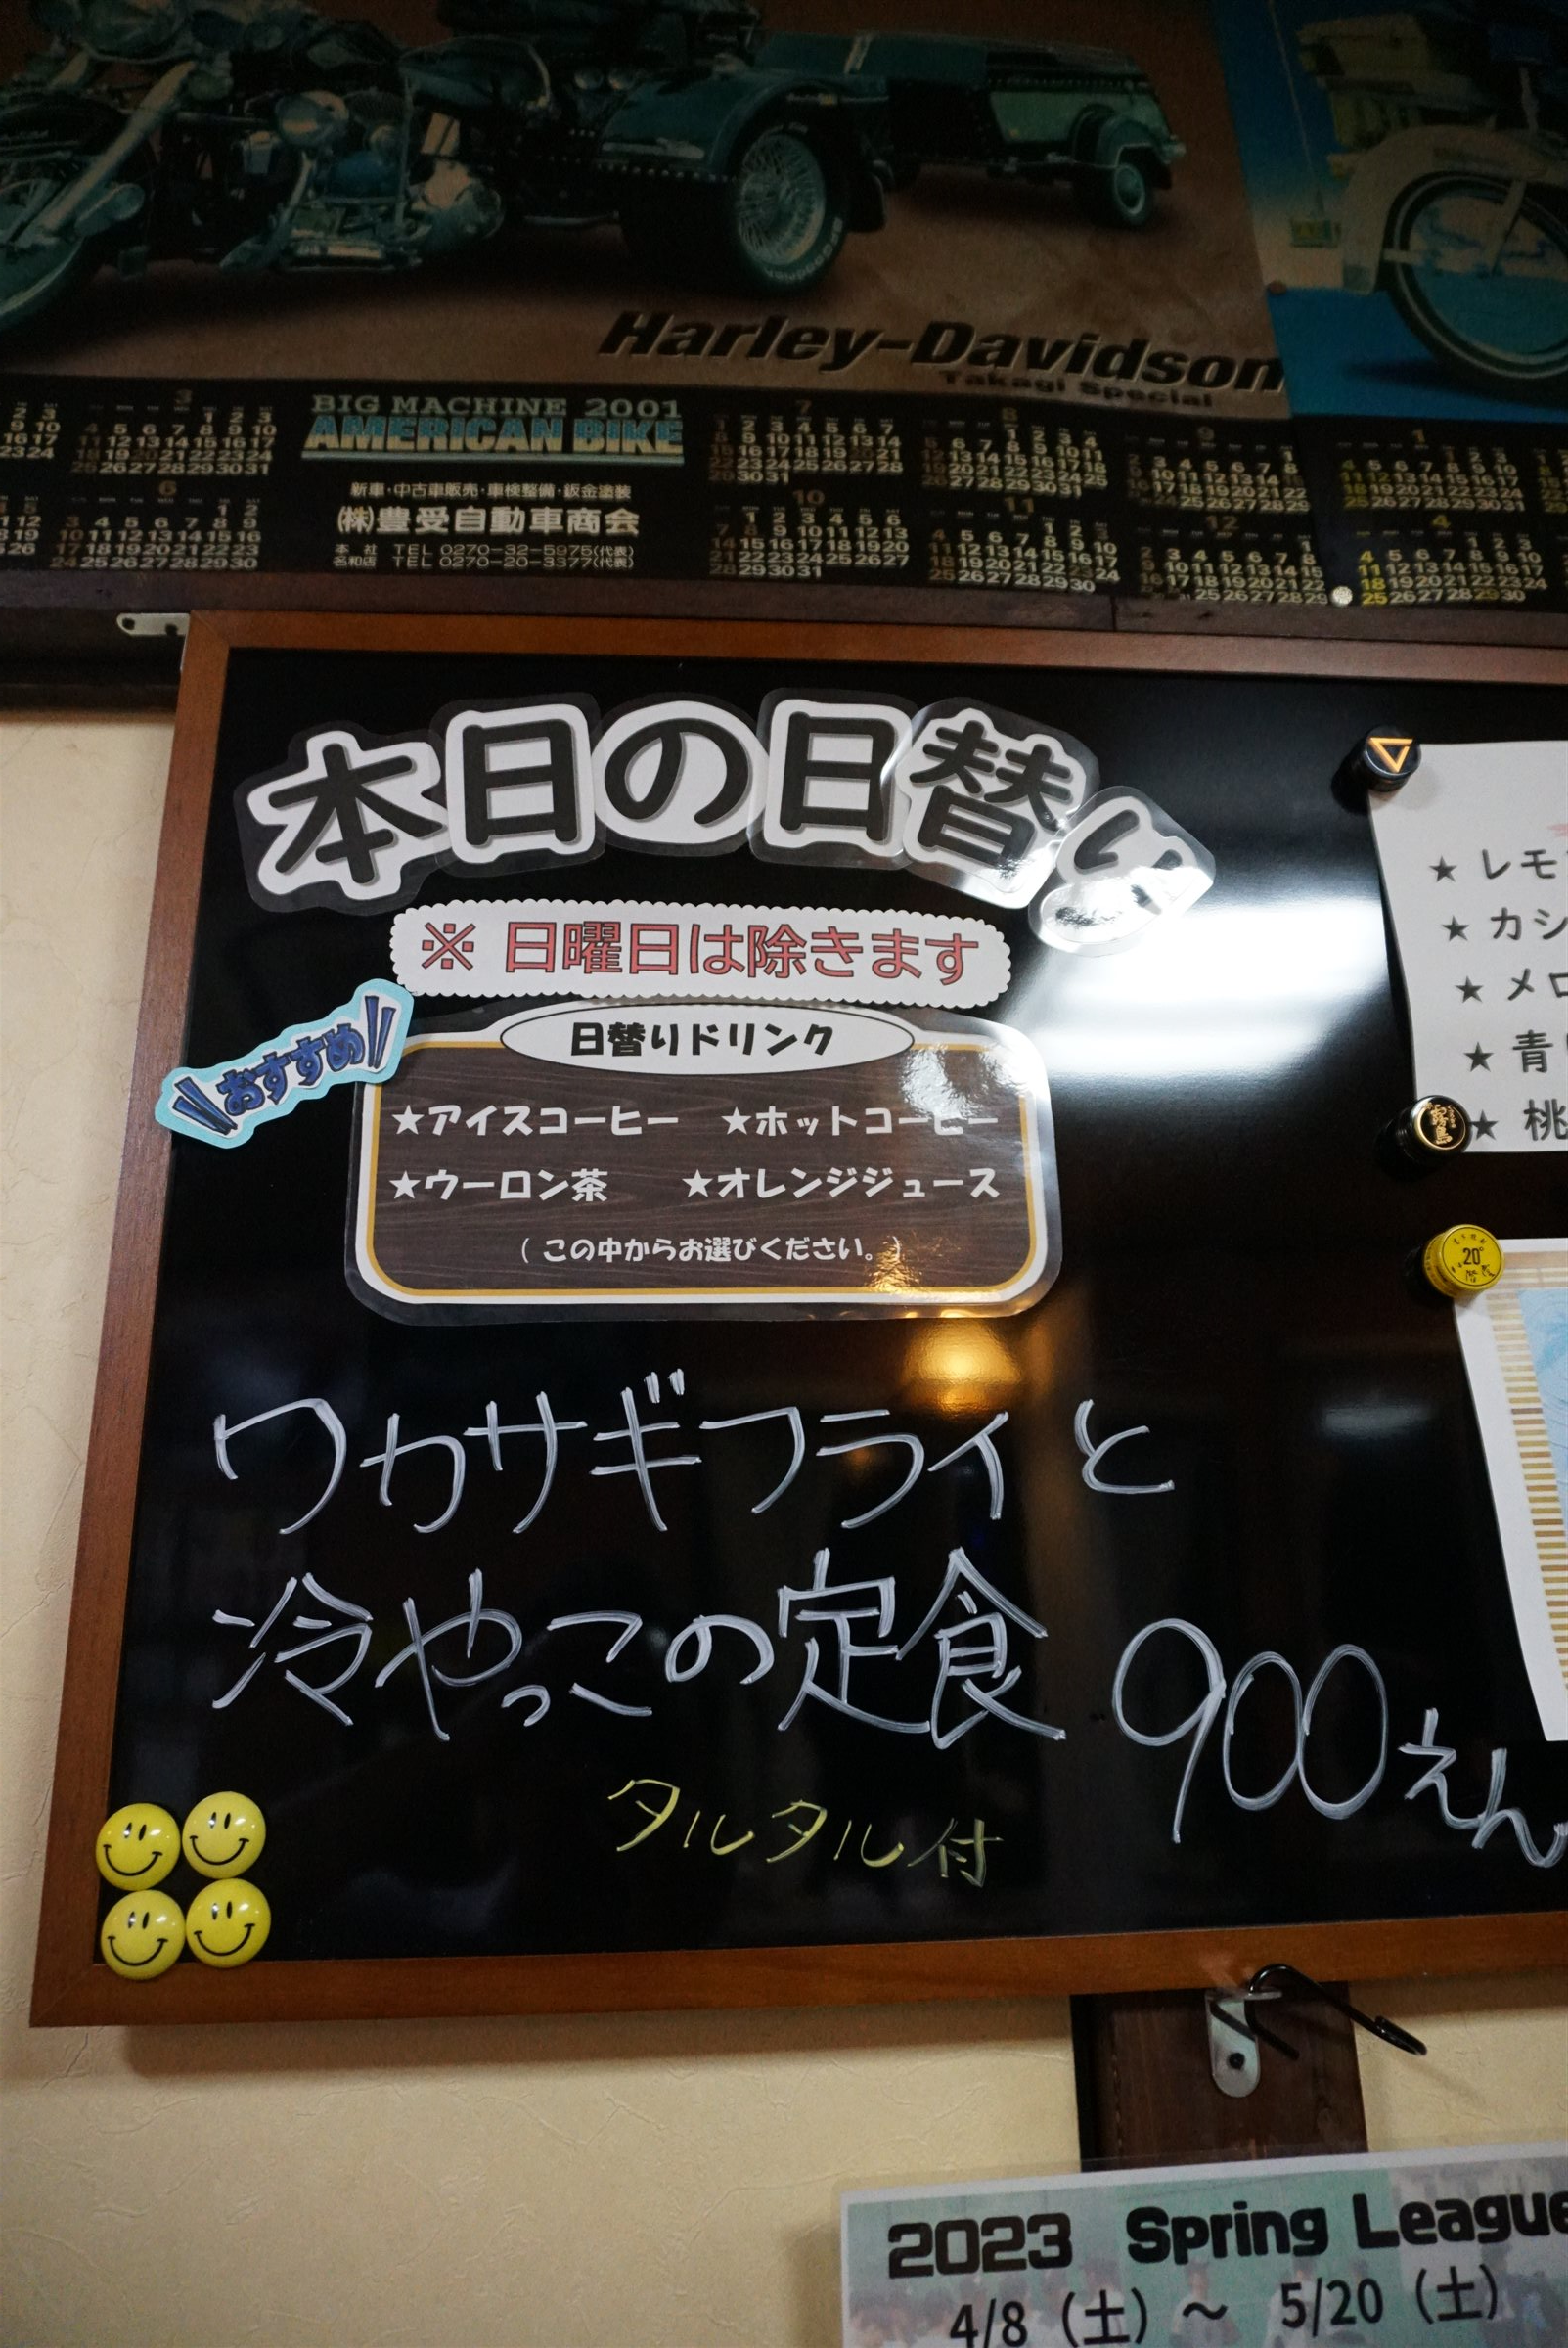 Harley-Davidson
Takagi Special
BIG MACHINE 2001
AMERICAN BIKE
新車・中古車販売・車検整備・鈑金塗装
(株)豊受自動車商会
本社 TEL 0270-32-5975(代表)
名和店 TEL 0270-20-3377(代表)
本日の日替り
※ 日曜日は除きます
おすすめ
日替りドリンク
★アイスコーヒー ★ホットコーヒー
★ウーロン茶 ★オレンジジュース
( この中からお選びください。 )
ワカサギフライと
冷やっこの定食 900えん
タルタル付
★ レモ
★ カシ
★ メロ
★ 青
★ 桃
霧島
20°
2023 Spring League
4/8（土）～ 5/20（土）